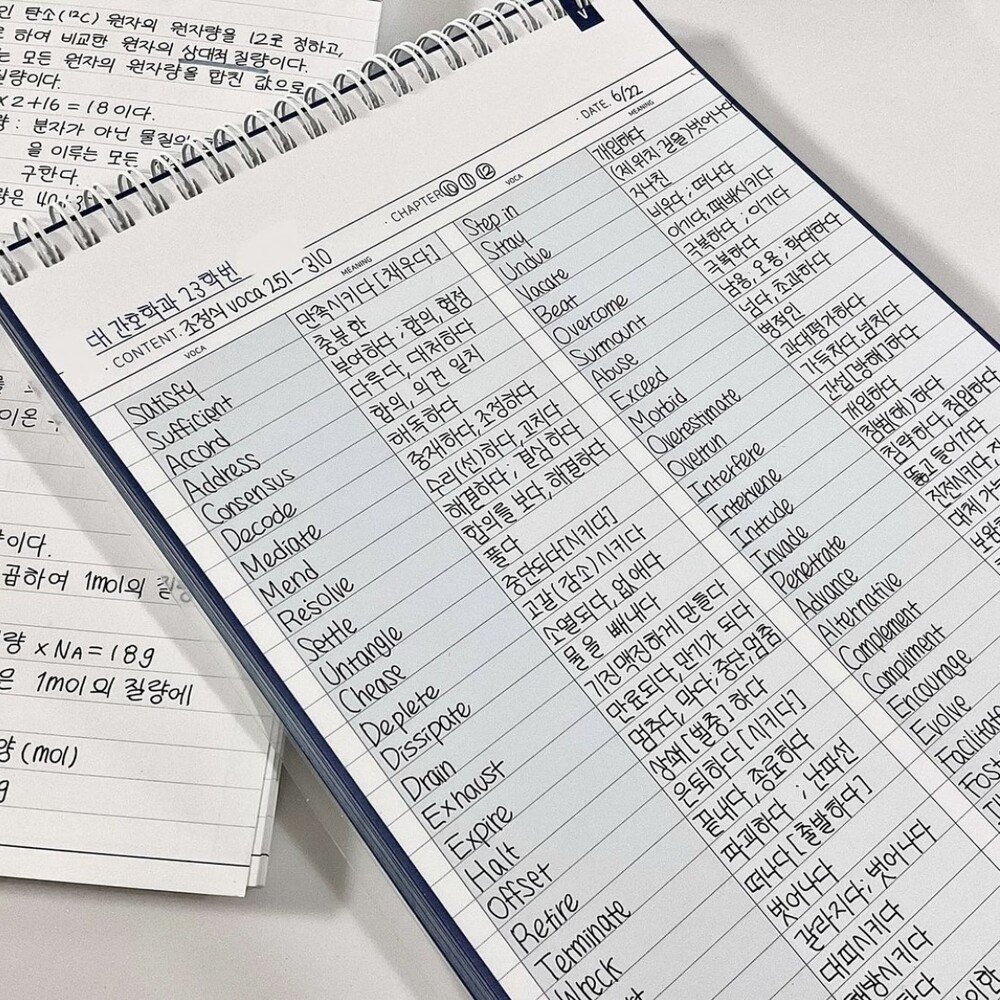 인 탄소(¹²C) 원자의 원자량을 12로 정하고,
로 하여 비교한 원자의 상대적 질량이다.
는 모든 원자의 원자량을 합친 값으로
질량이다.
×2+16=18이다.
량 : 분자가 아닌 물질의
을 이루는 모든
구한다.
량은
이다.
곱하여 1mol의 질량
량 ×NA=18g
은 1mol의 질량에
량(mol)
g
V
DATE. 6/22
CHAPTER ⑩ ⑪ ⑫
대 간호학과 23학번
CONTENT. 조정식 voca 251-310
VOCA MEANING
Satisfy 만족시키다[채우다]
Sufficient 충분한
Accord 부여하다; 합의, 협정
Address 다루다, 대처하다
Consensus 합의, 의견 일치
Decode 해독하다
Mediate 중재하다, 조정하다
Mend 수리(선)하다, 고치다
Resolve 해결하다; 결심하다
Settle 합의를 보다, 해결하다
Untangle 풀다
Chease 중단되다[시키다]
Deplete 고갈(감소)시키다
Dissipate 소멸되다, 없애다
Drain 물을 빼내다
Exhaust 기진맥진하게 만들다
Expire 만료되다, 만기가 되다
Halt 멈추다, 막다; 중단, 멈춤
Offset 상쇄[벌충]하다
Retire 은퇴하다[시키다]
Terminate 끝내다, 종료하다
Wreck 파괴하다 ; 난파선
떠나다[출발하다]
벗어나다
갈라지다; 벗어나다
대피시키다
VOCA MEANING
Step in 개입하다
Stray (제 위치·길을)벗어나다
Undue 지나친
Vacate 비우다; 떠나다
Beat 이기다, 패배시키다
Overcome 극복하다; 이기다
Surmount 극복하다
Abuse 남용, 오용; 학대하다
Exceed 넘다, 초과하다
Morbid 병적인
Overestimate 과대평가하다
Overrun 가득차다, 넘치다
Interfere 간섭[방해]하다
Intervene 개입하다
Intrude 침범(해)하다
Invade 침략하다, 침입하다
Penetrate 뚫고 들어가다
Advance 진전시키다,
Alternative 대체 가
Complement 보완
Compliment
Encourage
Evolve
Facilitat
Fost